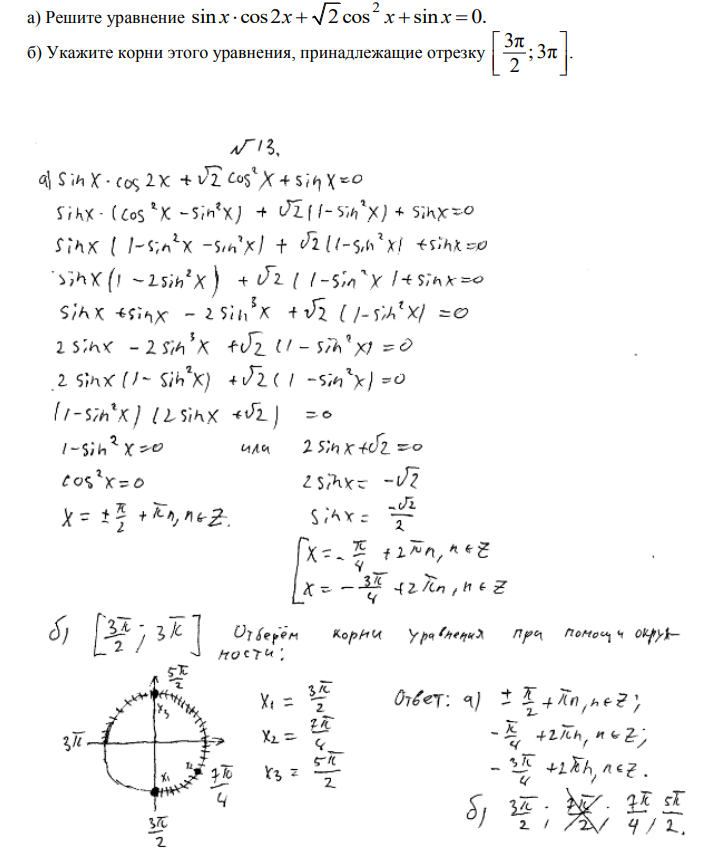 а) Решите уравнение sin x · cos 2x + √2 cos² x + sin x = 0.
б) Укажите корни этого уравнения, принадлежащие отрезку [3π/2; 3π].
№13.
а) sin x · cos 2x + √2 cos² x + sin x = 0
sin x · (cos² x − sin² x) + √2 (1 − sin² x) + sin x = 0
sin x (1 − sin² x − sin² x) + √2 (1 − sin² x) + sin x = 0
sin x (1 − 2 sin² x) + √2 (1 − sin² x) + sin x = 0
sin x + sin x − 2 sin³ x + √2 (1 − sin² x) = 0
2 sin x − 2 sin³ x + √2 (1 − sin² x) = 0
2 sin x (1 − sin² x) + √2 (1 − sin² x) = 0
(1 − sin² x) (2 sin x + √2) = 0
1 − sin² x = 0 или 2 sin x + √2 = 0
cos² x = 0 2 sin x = −√2
x = ± π/2 + πn, n ∈ Z. sin x = −√2/2
x = − π/4 + 2πn, n ∈ Z
x = − 3π/4 + 2πn, n ∈ Z
б) [3π/2; 3π] Отберём корни уравнения при помощи окруж-
ности:
5π/2
x₃
3π
x₁
x₂
7π/4
3π/2
x₁ = 3π/2
x₂ = 7π/4
x₃ = 5π/2
Ответ: а) ± π/2 + πn, n ∈ Z;
− π/4 + 2πn, n ∈ Z;
− 3π/4 + 2πn, n ∈ Z.
б) 3π/2; 7π/4; 5π/2.